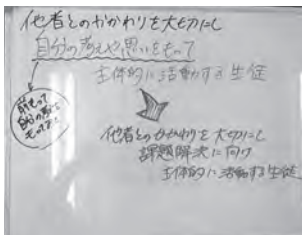 他者とのかかわりを大切にし
自分の考えや思いをもって
主体的に活動する生徒
前もって
自分の
他者とのかかわりを大切にし
課題解決に向け
主体的に活動する生徒